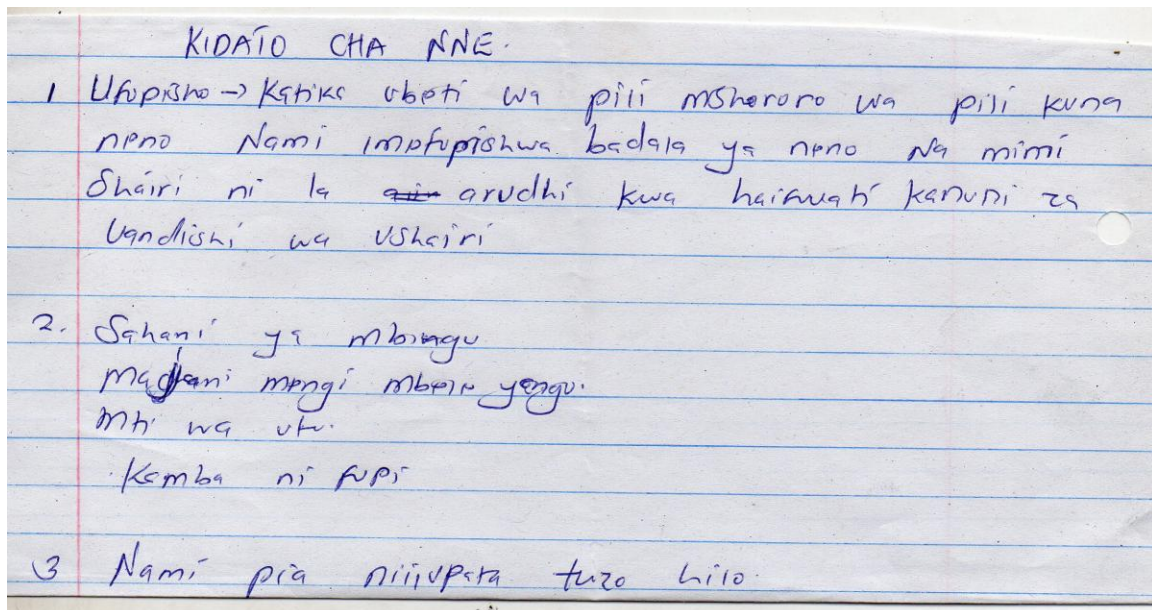 KIDATO CHA NNE.
1 Ufupisho → Katika ubeti wa pili mshororo wa pili kuna
neno Nami imefupishwa badala ya neno Na mimi
Shairi ni la arudhi kwa haifuati kanuni za
Uandishi wa Ushairi
2. Sahani ya mbingu
mengi mbele yangu.
Mti wa utu.
Kamba ni fupi
3 Nami pia tuzo hilo.